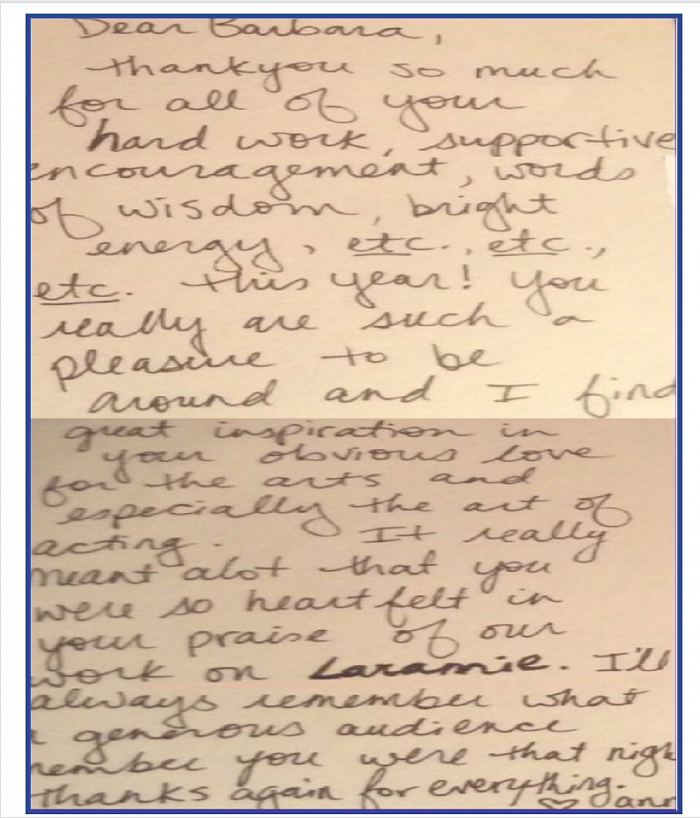 Dear Barbara,
thankyou so much
for all of your
hard work, supportive
encouragement, words
of wisdom, bright
energy, etc., etc.,
etc. this year! You
really are such a
pleasure to be
around and I find
great inspiration in
your obvious love
for the arts and
especially the art of
acting. It really
meant alot that you
were so heartfelt in
your praise of our
work on Laramie. I'll
always remember what
a generous audience
member you were that nigh
thanks again for everything.
♡ ann